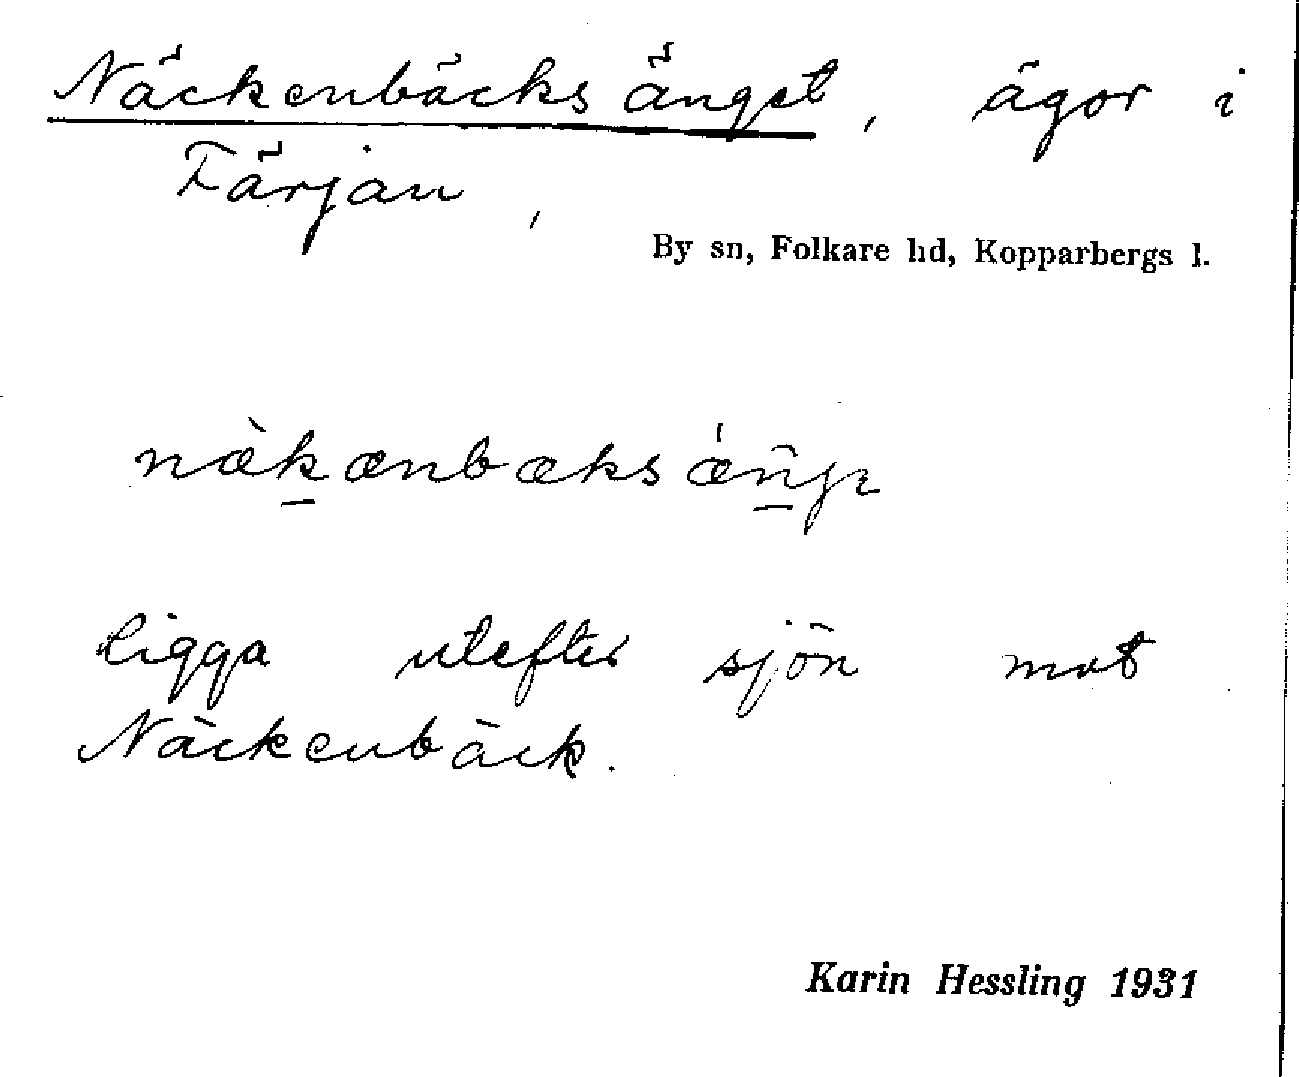 Näckenbäcksänget, ägor i
Färjan,
By sn, Folkare hd, Kopparbergs l.
næ̀k̠ænbæksǽñ̠jɩ
ligga utefter sjön mot
Näckenbäck.
Karin Hessling 1931